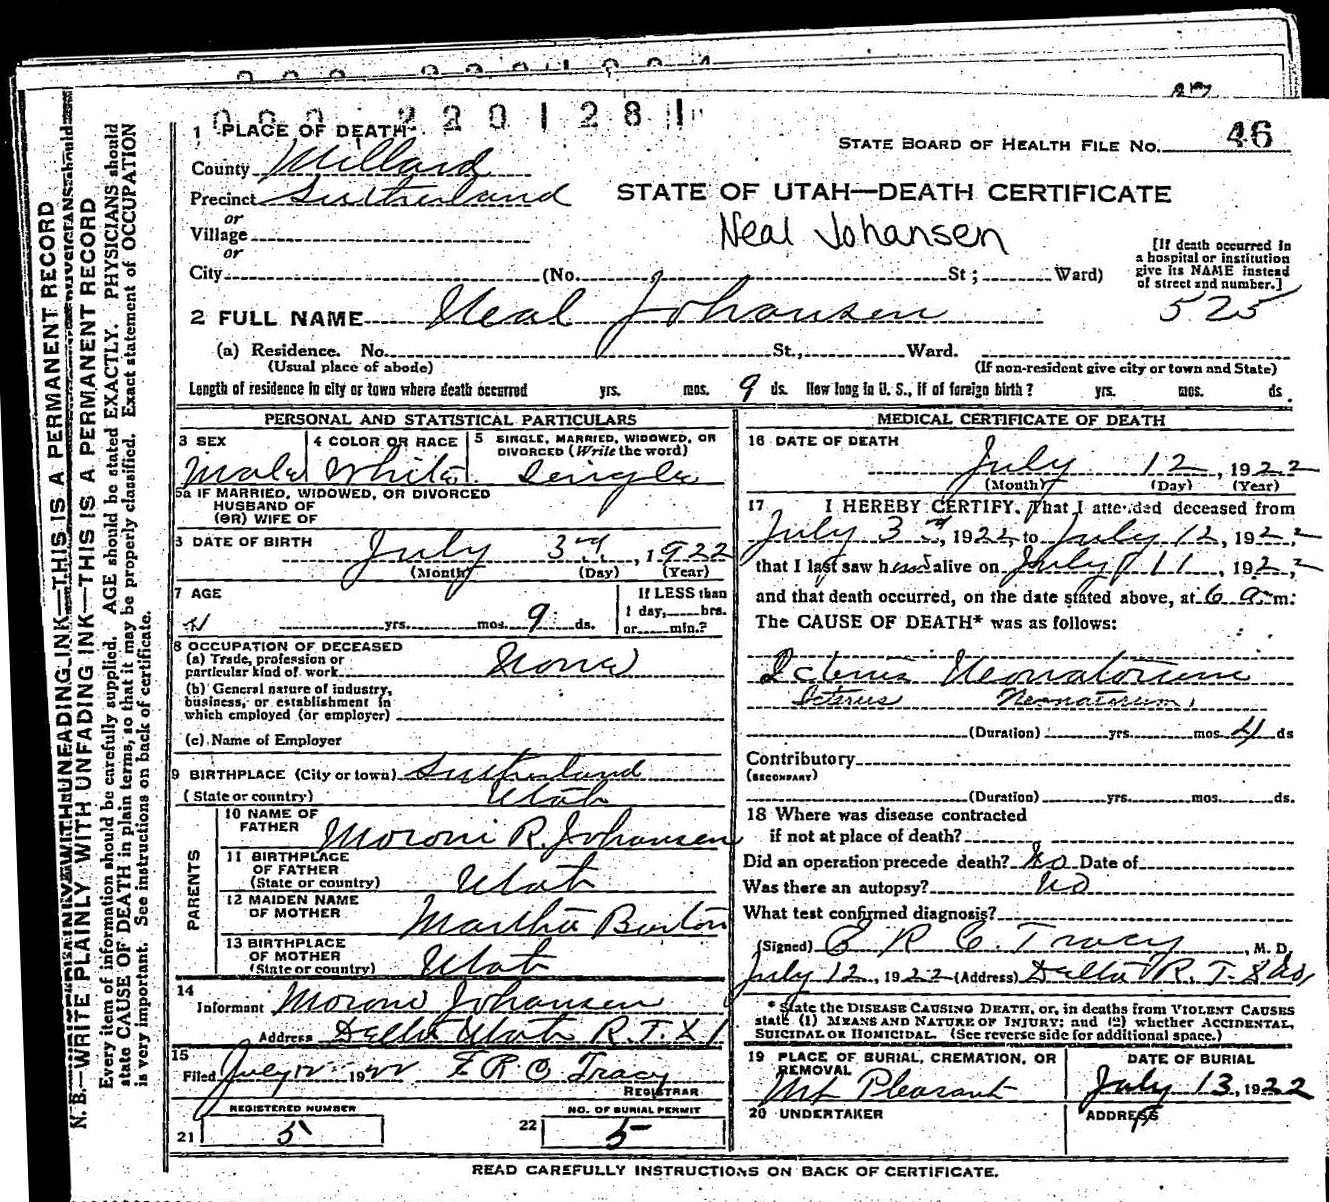 000 220128
46
STATE BOARD OF HEALTH FILE NO.
1 PLACE OF DEATH
County Millard
Precinct Sutherland
or
Village
or
City (No. St; Ward)
STATE OF UTAH—DEATH CERTIFICATE
Neal Johansen
[If death occurred in
a hospital or institution
give its NAME instead
of street and number.]
525
2 FULL NAME Neal Johansen
(a) Residence. No. St., Ward.
(Usual place of abode) (If non-resident give city or town and State)
Length of residence in city or town where death occurred yrs. mos. 9 ds. How long in U. S., if of foreign birth? yrs. mos. ds.
PERSONAL AND STATISTICAL PARTICULARS
3 SEX Male
4 COLOR OR RACE White
5 SINGLE, MARRIED, WIDOWED, OR
DIVORCED (Write the word)
Single
5a IF MARRIED, WIDOWED, OR DIVORCED
HUSBAND OF
(OR) WIFE OF
6 DATE OF BIRTH July 3rd, 1922
(Month) (Day) (Year)
7 AGE
yrs. mos. 9 ds.
If LESS than
1 day, hrs.
or min.?
8 OCCUPATION OF DECEASED
(a) Trade, profession or
particular kind of work None
(b) General nature of industry,
business, or establishment in
which employed (or employer)
(c) Name of Employer
9 BIRTHPLACE (City or town) Sutherland
(State or country) Utah
PARENTS
10 NAME OF
FATHER Moroni R. Johansen
11 BIRTHPLACE
OF FATHER
(State or country) Utah
12 MAIDEN NAME
OF MOTHER Martha Burton
13 BIRTHPLACE
OF MOTHER
(State or country) Utah
14
Informant Moroni Johansen
Address Delta Utah R.
15
Filed July 12 1922 E R C Tracy
REGISTRAR
REGISTERED NUMBER
21 5
NO. OF BURIAL PERMIT
22 5
MEDICAL CERTIFICATE OF DEATH
16 DATE OF DEATH
July 12, 1922
(Month) (Day) (Year)
17 I HEREBY CERTIFY, That I attended deceased from
July 3rd, 1922, to July 12, 1922,
that I last saw h alive on July 11, 1922,
and that death occurred, on the date stated above, at 6 a. m.
The CAUSE OF DEATH* was as follows:
Icterus Neonatorum
Icterus Neonatorum,
(Duration) yrs. mos. 4 ds
Contributory
(SECONDARY)
(Duration) yrs. mos. ds.
18 Where was disease contracted
if not at place of death?
Did an operation precede death? No Date of
Was there an autopsy? No
What test confirmed diagnosis?
(Signed) E R C Tracy, M. D.
July 12, 1922 (Address) Delta R.
* State the DISEASE CAUSING DEATH, or, in deaths from VIOLENT CAUSES
state (1) MEANS AND NATURE OF INJURY; and (2) whether ACCIDENTAL,
SUICIDAL OR HOMICIDAL. (See reverse side for additional space.)
19 PLACE OF BURIAL, CREMATION, OR
REMOVAL
Mt Pleasant
DATE OF BURIAL
July 13, 1922
20 UNDERTAKER
ADDRESS
READ CAREFULLY INSTRUCTIONS ON BACK OF CERTIFICATE.
N. B.—WRITE PLAINLY WITH UNFADING INK—THIS IS A PERMANENT RECORD
Every item of information should be carefully supplied. AGE should be stated EXACTLY. PHYSICIANS should
state CAUSE OF DEATH in plain terms, so that it may be properly classified. Exact statement of OCCUPATION
is very important. See instructions on back of certificate.